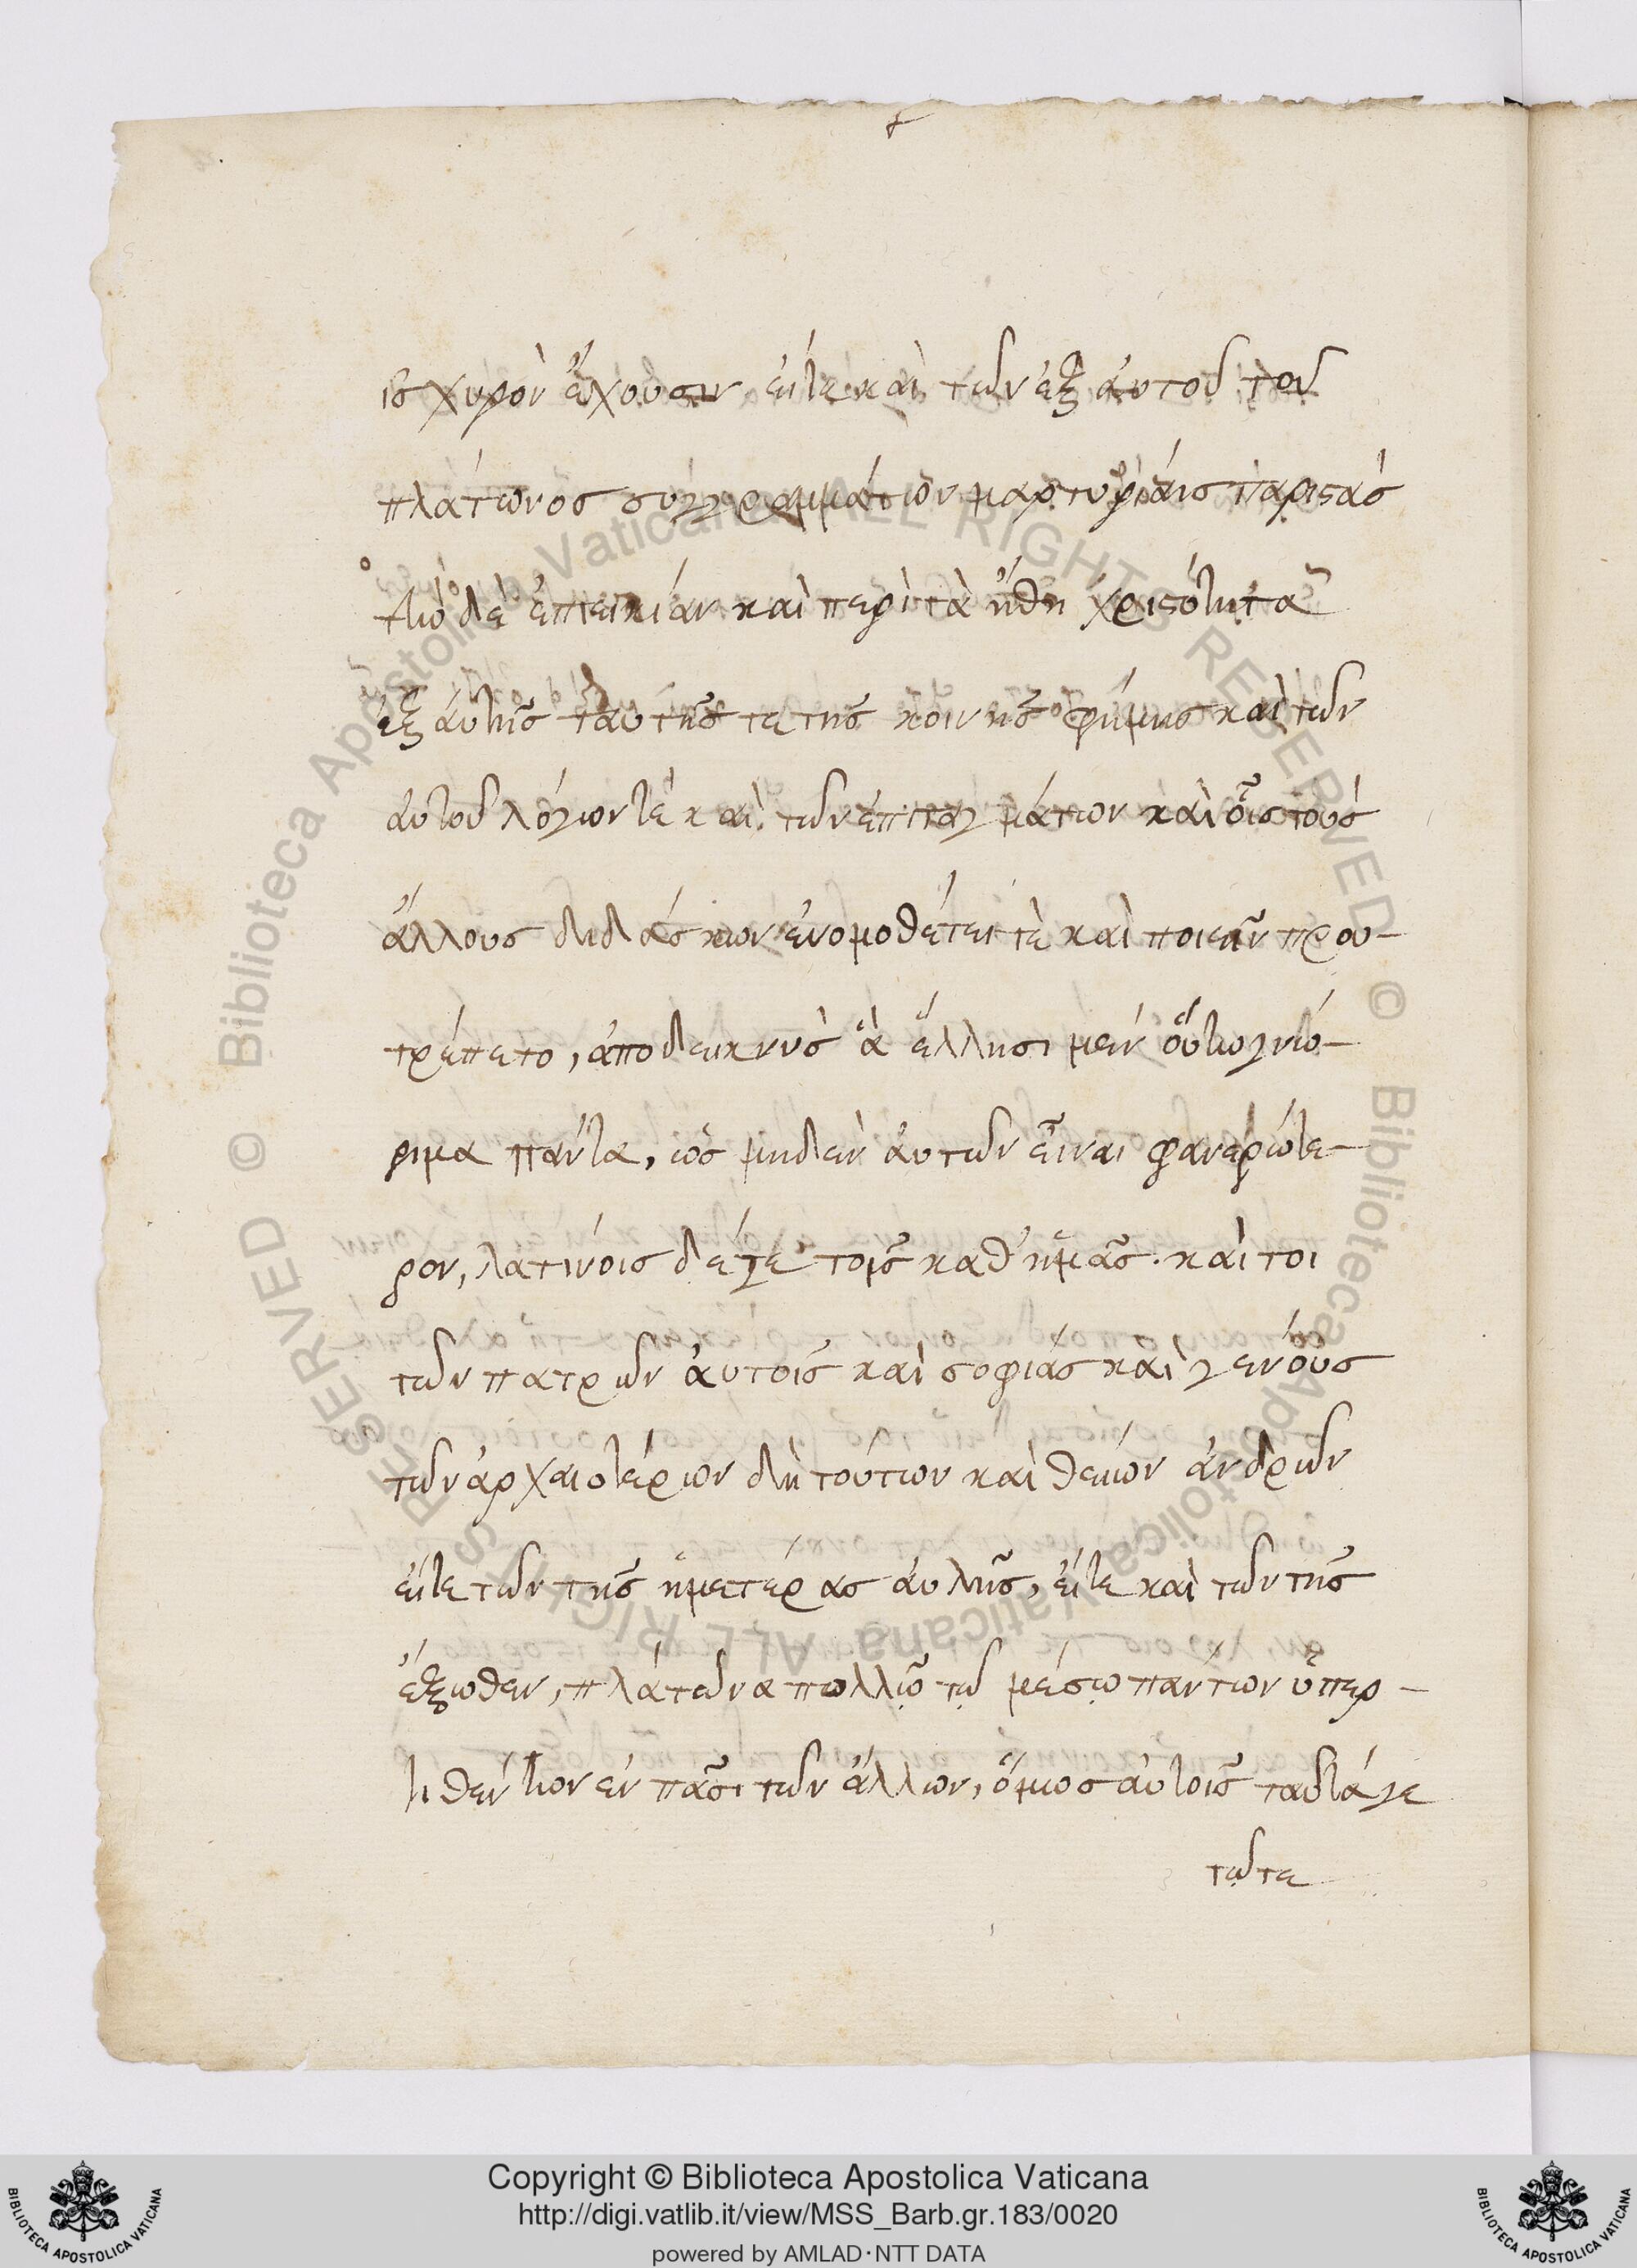 ἰσχυρὸν ἔχουσιν εἴτε καὶ τῶν ἐξ αὐτοῦ τοῦ
πλάτωνος συγγραμμάτων μαρτυρίαις παριστάς
τὴν δὲ ἐπιεικίαν καὶ περὶ τὰ ἤθη χριστότητα
ἐξ αὐτῆς ταύτης τε τῆς κοινῆς φήμης καὶ τῶν
αὐτοῦ λόγων τὲ καὶ τῶν ἐπιταγμάτων καὶ οἷς τοὺς
ἄλλους διδάσκων ἐνομοθέτει τὲ καὶ ποιεῖν πρου-
τρέπετο, ἀποδεικνὺς ἃ ἕλλησι μὲν οὕτω γνώ-
ριμα πάντα, ὡς μηδὲν αὐτῶν εἶναι φανερώτε-
ρον, λατίνοις δέ γε τοῖς καθ' ἡμᾶς. καὶ τοι
τῶν πατρῶν αὐτοῖς καὶ σοφίας καὶ γένους
τῶν ἀρχαιοτέρων δὴ τούτων καὶ θείων ἀνδρῶν
εἴτε τῶν τῆς ἡμετέρας αὐλῆς, εἴτε καὶ τῶν τῆς
ἔξωθεν, πλάτωνα πολλῷ τῷ μέσῳ πάντων ὑπερ-
τιθέντων ἐν πᾶσι τῶν ἄλλων, ὅμως αὐτοῖς ταῦτά γε
τῷ τε
Copyright © Biblioteca Apostolica Vaticana
http://digi.vatlib.it/view/MSS_Barb.gr.183/0020
powered by AMLAD·NTT DATA
BIBLIOTECA APOSTOLICA VATICANA
BIBLIOTECA APOSTOLICA VATICANA
© Biblioteca Apostolica Vaticana ALL RIGHTS RESERVED
© Biblioteca Apostolica Vaticana ALL RIGHTS RESERVED